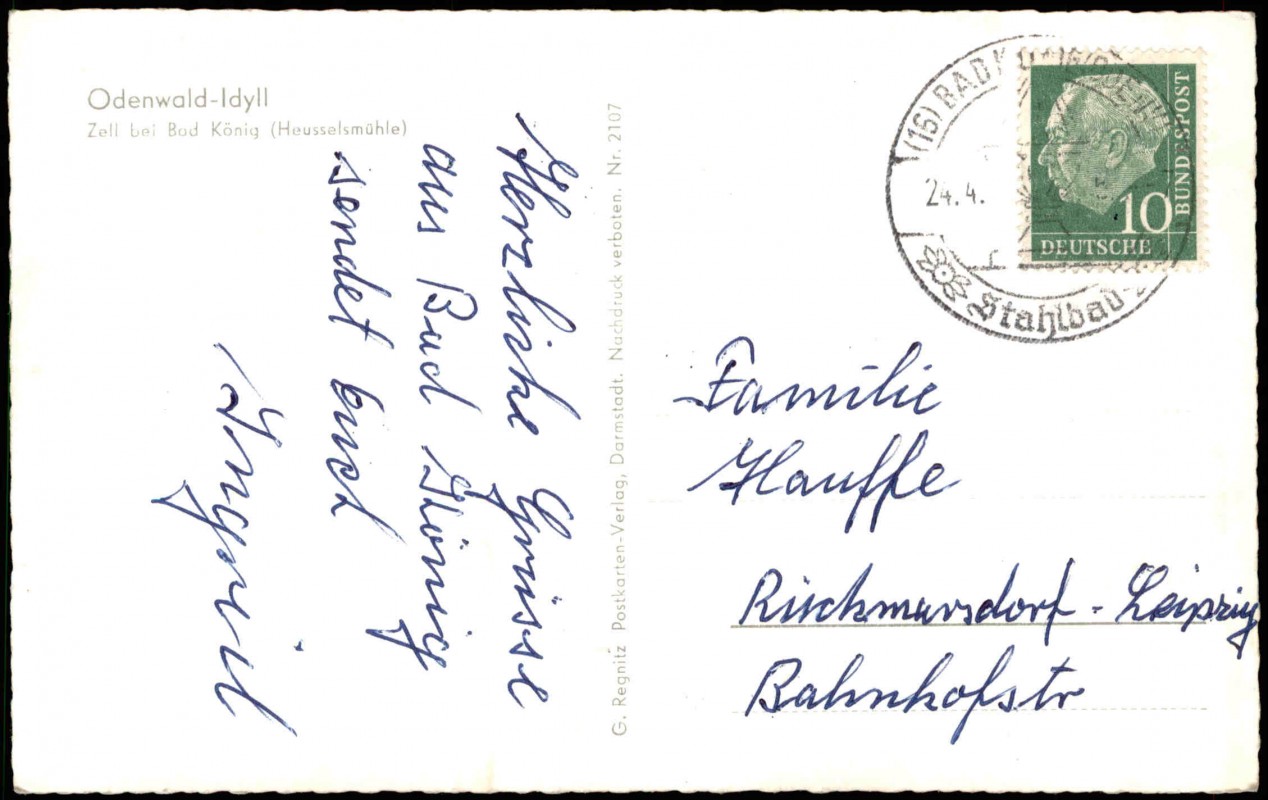 Odenwald-Idyll
Zell bei Bad König (Heusselsmühle)
Herzliche Grüsse
aus Bad König
sendet Euch
Ingrid
G. Regnitz Postkarten-Verlag, Darmstadt. Nachdruck verboten. Nr. 2107
(16) BAD
24.4.
Stahlbad
10
DEUTSCHE
BUNDESPOST
Familie
Hauffe
Rückmarsdorf - Leipzig
Bahnhofstr